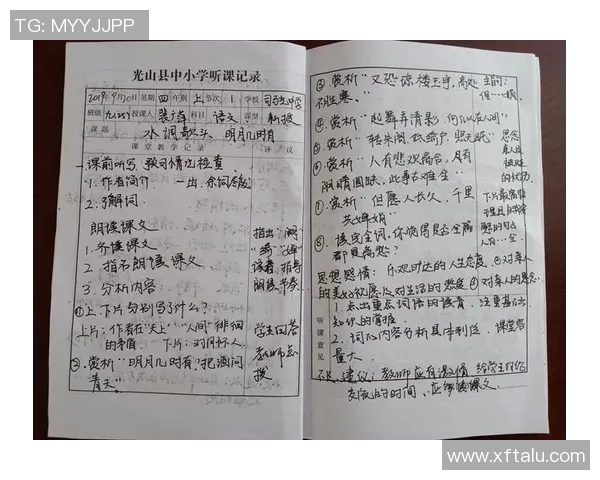 TG: MYYJJPP
光山县中小学听课记录
2019年9月20日 星期 四 年级 上 节次 1 学校
班级 九(257) 授课人 科目 语文 课型 新授
课题 水调歌头·明月几时有
课堂教学记录 评议
课前听写、预习情况检查
1. 作者简介
2. 了解词
朗读课文
1. 齐读课文
2. 指名朗读课文
3. 分析内容
①上、下片分别写了什么?
上片:作者在"天上""人间"徘徊
的矛盾 下片:对月怀人
②. 赏析"明月几时有,把酒问
青天"
指出"阙"
"绮""婵"
读音,指导
朗读、节奏
学生回答
教师点
拨
③. 赏析"又恐琼楼玉宇,高处
不胜寒。"
④. 赏析"起舞弄清影,何似在人间"
⑤. 赏析"转朱阁,低绮户,照无眠"
⑥. 赏析"人有悲欢离合,月有
阴晴圆缺,此事古难全"
⑦. 赏析"但愿人长久,千里
共婵娟"
⑧. 读完全词,你觉得是否全篇
都是离愁?
思想感情: 乐观旷达的人生态度 ②对亲人
的美好祝愿以及对生活的热爱 ④对亲人的思念
听课意见
1. 点出重点词语的读音,注重基础
知识的掌握
2. 词的内容分析具体到位,课堂容
量大
建议:教师应有激情 给学生时间
交流的时间,应
课文
www.xftalu.com